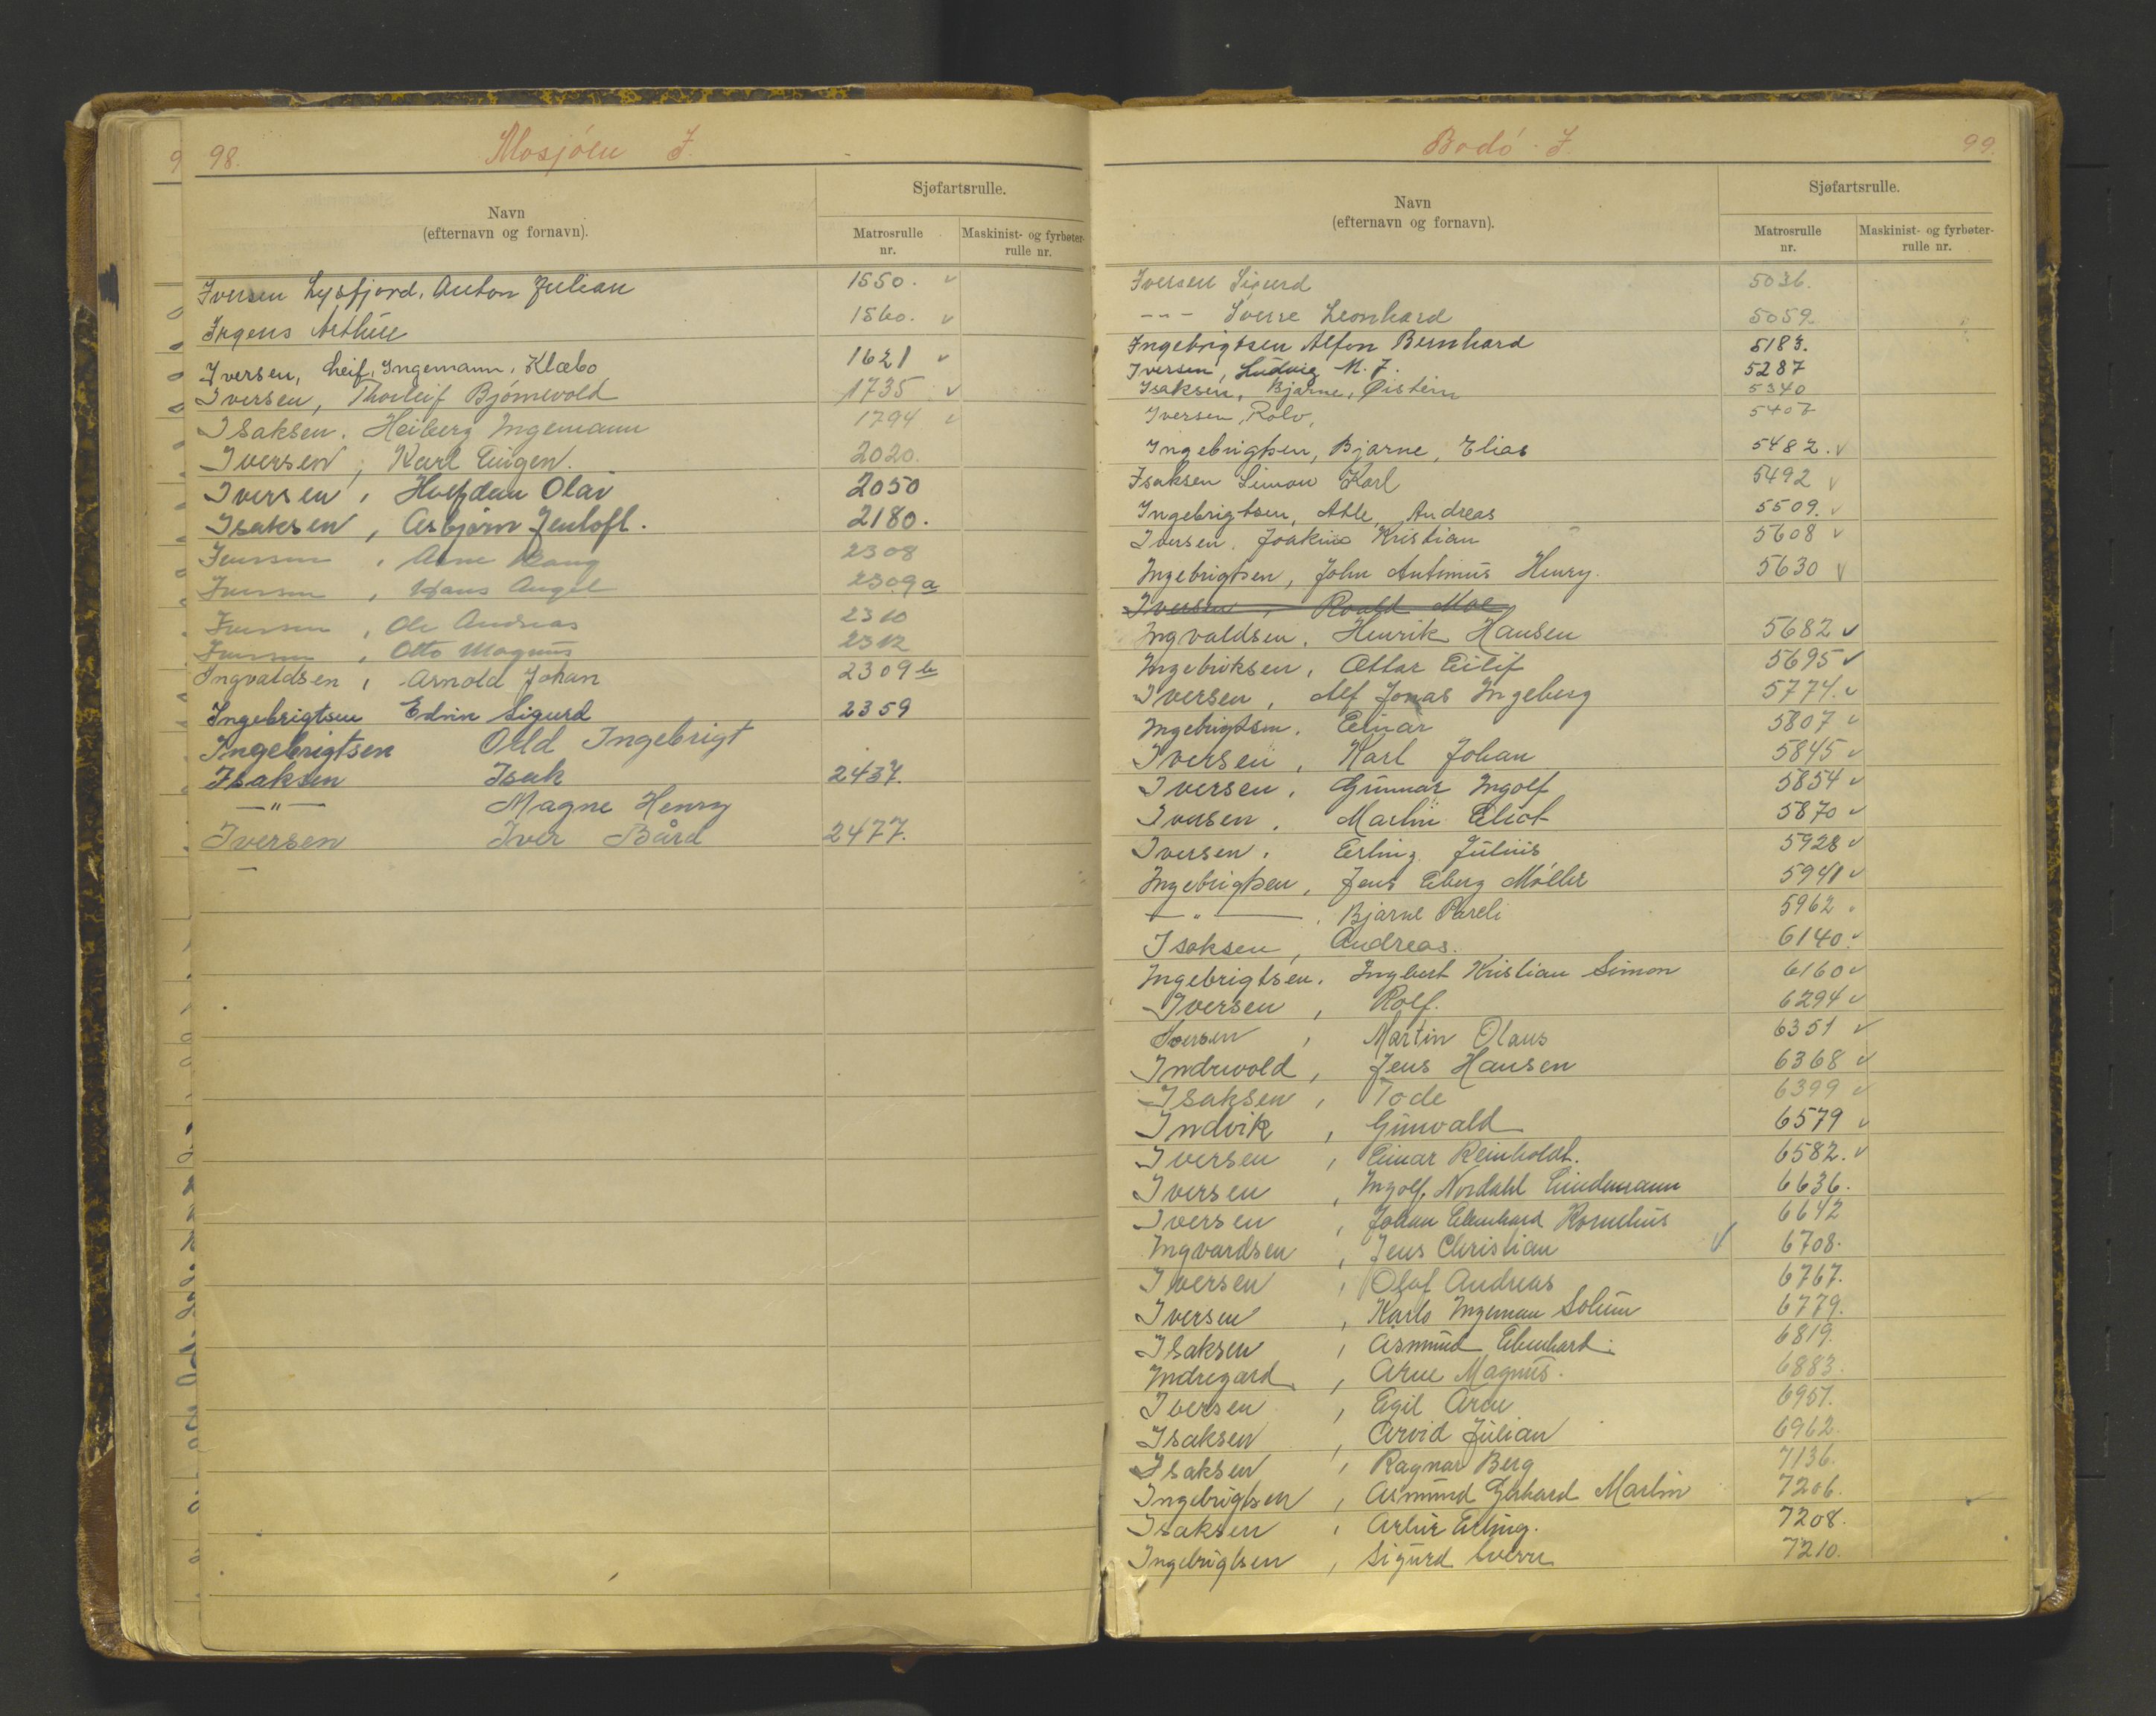 98.
Mosjöen I.
Navn
(efternavn og fornavn).
Sjøfartsrulle.
Matrosrulle
nr.
Maskinist- og fyrbøter-
rulle nr.
Iversen Lysfjord, Anton Julian 1550. ✓
Irgens Arthur 1560. ✓
Iversen, Leif, Ingemann, Klæbo 1621 ✓
Iversen, Thorleif Bjørnevold 1735 ✓
Isaksen, Heiberg Ingemann 1794 ✓
Iversen, Karl Eugen. 2020.
Iversen, Halfdan Olav 2050
Isaksen, Asbjørn Jentoft. 2180.
Iversen, Arne Bang 2308
Iversen, Hans Angel 2309 a
Iversen, Ole Andreas 2310
Iversen, Otto Magnus 2312
Ingvaldsen, Arnold Johan 2309 b
Ingebrigtsen Edvin Sigurd 2359
Ingebrigtsen Odd Ingebrigt
Isaksen Isak 2437.
—"— Magne Henry
Iversen Iver Bård 2477.
—
Bodö. I.
99.
Navn
(efternavn og fornavn).
Sjøfartsrulle.
Matrosrulle
nr.
Maskinist- og fyrbøter-
rulle nr.
Iversen Sigurd 5036.
-"- Sverre Leonhard 5059
Ingebrigtsen Alfon Bernhard 5183.
Iversen, Ludvig M. J. 5287
Isaksen, Bjarne, Øistein 5340
Iversen, Rolv,
Ingebrigtsen, Bjarne, Elias 5482. ✓
Isaksen Simon Karl 5492 ✓
Ingebrigtsen, Atle, Andreas 5509. ✓
Iversen, Joakim Kristian 5608 ✓
Ingebrigtsen, John Antinius Henry. 5630 ✓
Iversen, Roald Moe
Ingvaldsen, Henrik Hansen 5682 ✓
Ingebriksen, Ottar Eilif 5695 ✓
Iversen, Alf Jonas Ingeberg 5774. ✓
Ingebrigtsen, Einar 5807 ✓
Iversen, Karl Johan 5845 ✓
Iversen, Gunnar Ingolf 5854 ✓
Iversen, Martin Eliot 5870 ✓
Iversen, Erling Julius 5928 ✓
Ingebrigtsen, Jens Eberg Möller 5941 ✓
—"—, Bjarne Pareli 5962
Isaksen, Andreas. 6140. ✓
Ingebrigtsen, Ingbert Kristian Simon 6160 ✓
Iversen, Rolf. 6294 ✓
Iversen, Martin Olaus 6351 ✓
Indrevold, Jens Hansen 6368 ✓
Isaksen, Tode 6399 ✓
Indvik, Gunvald 6579 ✓
Iversen, Einar Reinholdt. 6582. ✓
Iversen, Ingolf Nordahl Lindemann 6636.
Iversen, Johan Edenhard Kornelius 6642
Ingvardsen, Jens Christian ✓ 6708.
Iversen, Olaf Andreas 6767.
Iversen, Karlo Ingeman Solum 6779.
Isaksen, Asmund Edenhard. 6819.
Indregard, Arne Magnus. 6883.
Iversen, Egil Arne 6951.
Isaksen, Arvid Julian 6962.
Isaksen, Ragnar Berg 7136.
Ingebrigtsen, Asmund Gerhard Martin 7206.
Isaksen, Artur Erling. 7208.
Ingebrigtsen, Sigurd Sverre 7210.